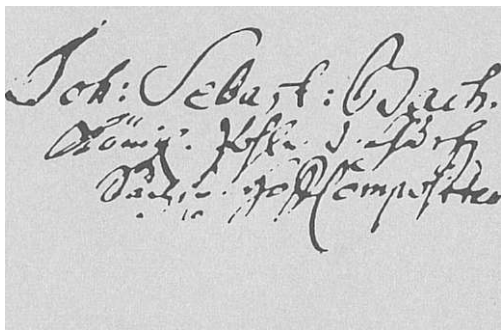 Joh: Sebast: Bach.
Königl. Pohln. u. Churf.
Sächs. Hoff Compositeur